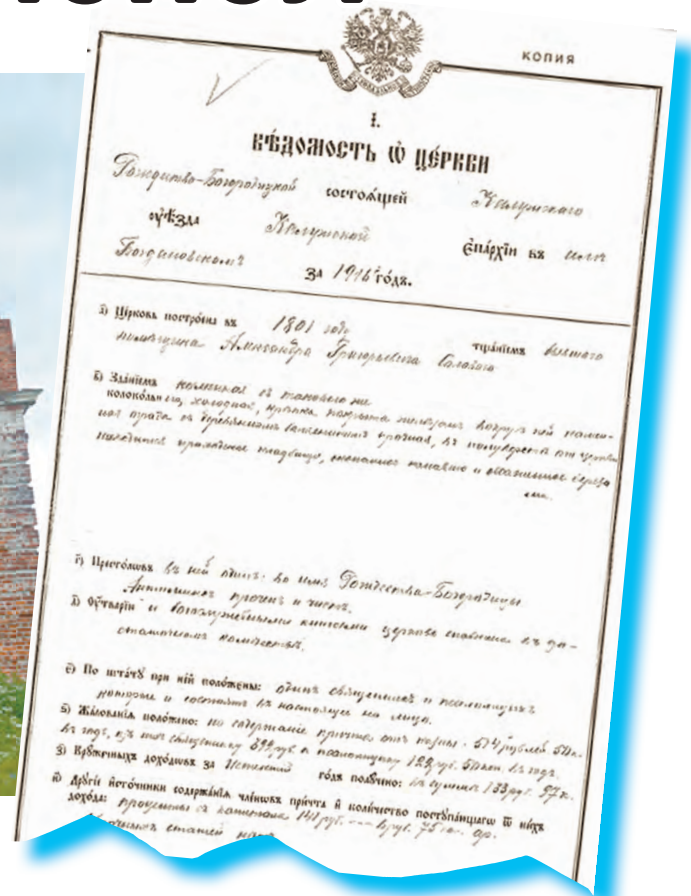 КОПИЯ
І.
ВѢДОМОСТЬ Ѿ ЦЕРКВИ
Рождество-Богородицкой состоѧщей Калужскаго
оуѣзда Калужской Епархїи въ селѣ
Богдановскомъ
За 1916 годъ.
а) Церковь построена въ 1801 году тщанїемъ бывшаго
помѣщика Александра Григорьевича
в) Зданїемъ каменная съ таковою же
колокольнею, холодная, крышка покрыта желѣзомъ вокругъ ней
ограда съ деревяннымъ прочная, въ отъ церкви
находится приходское кладбище, и деревь
ями.
г) Престоловъ въ ней одинъ: во имя Рождества-Богородицы
Антиминсъ проченъ и чистъ.
д) Оутварїю и богослужебными книгами церковь снабжена въ до-
статочномъ количествѣ.
е) По штатѹ при ней положены: одинъ священникъ и псаломщикъ
которые и состоятъ въ настоящее на лицо.
ѕ) Жалованїѧ положено: на содержанїе причта отъ казны 514 рублей 50 к.
въ годъ, изъ нихъ священнику 392 руб. а псаломщику 122 руб. 50 коп. въ годъ.
з) Крѹжечныхъ доходовъ за Истекшій годъ полѹчено: въ суммѣ 133 руб. 57 к.
и) Дрѹгїе источники содержанїѧ членовъ причта и количество постѹпающагѡ ѿ нихъ
дохода: проценты съ капитала 141 руб. 75 к.
статей